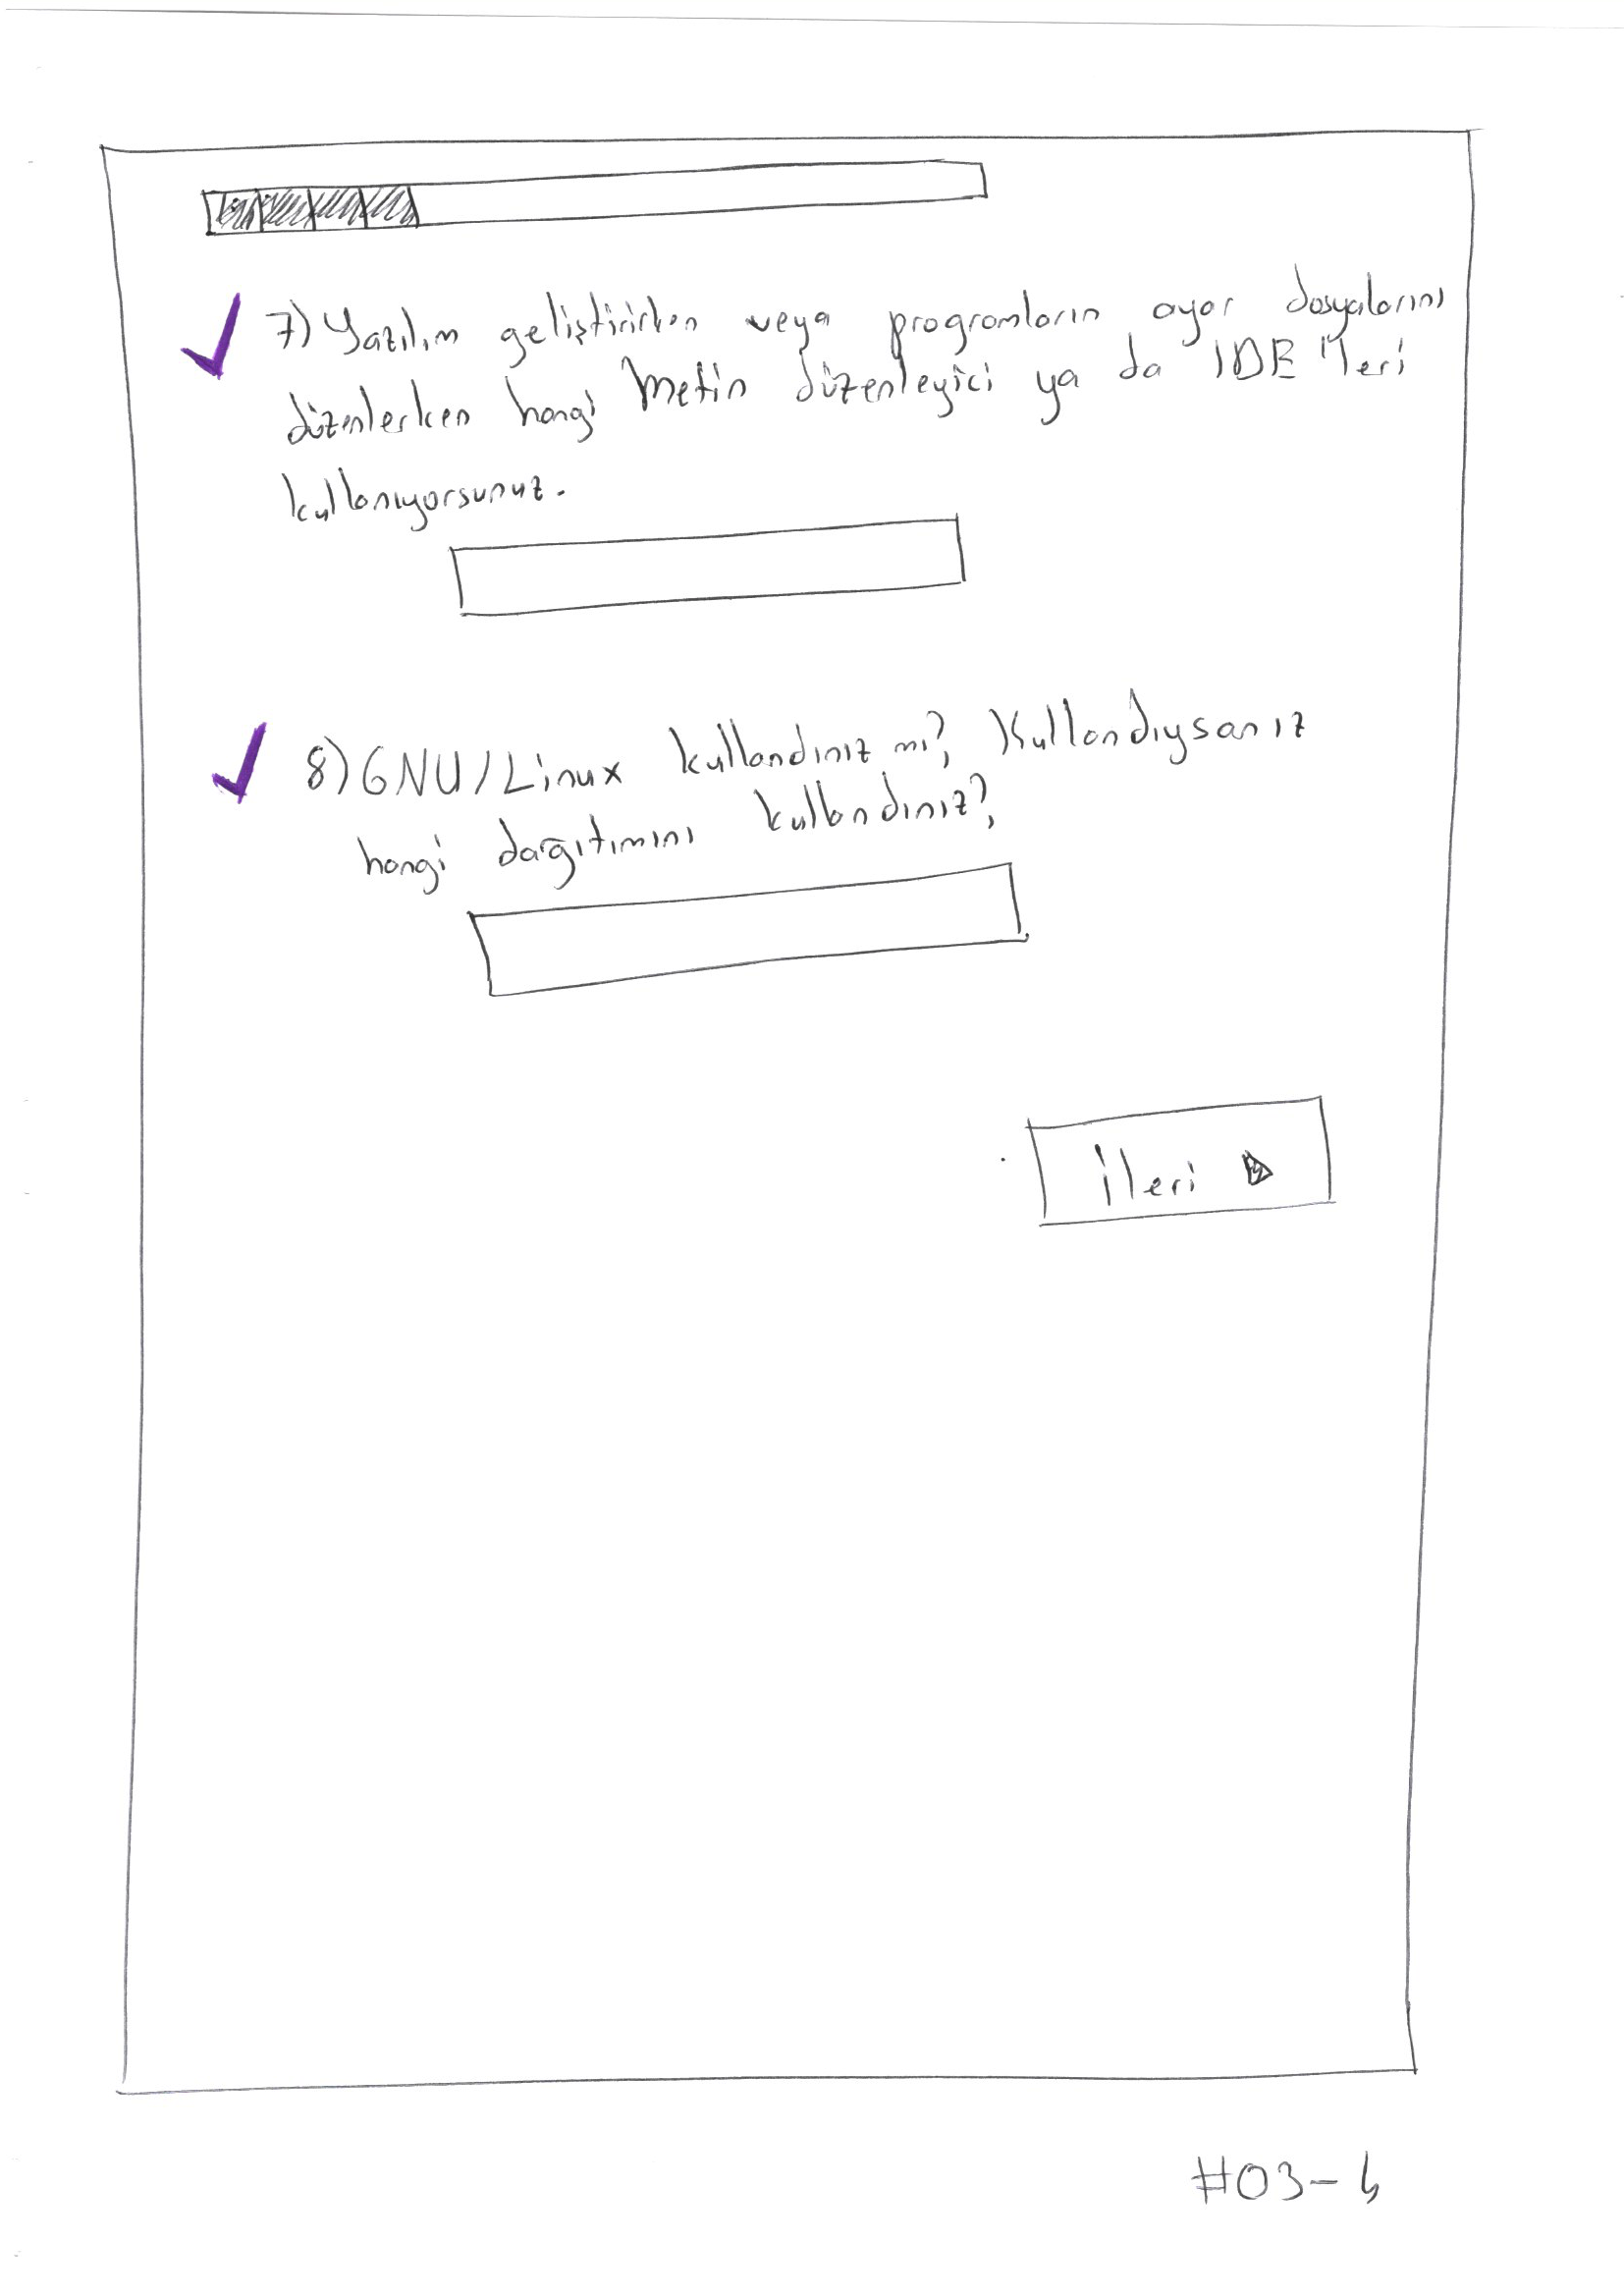 7) Yazılım geliştirirken veya programların ayar dosyalarını
düzenlerken hangi Metin düzenleyici ya da IDE'leri
kullanıyorsunuz.
8) GNU/Linux kullandınız mı?, Kullandıysanız
hangi dağıtımını kullandınız?,
İleri
#03-4